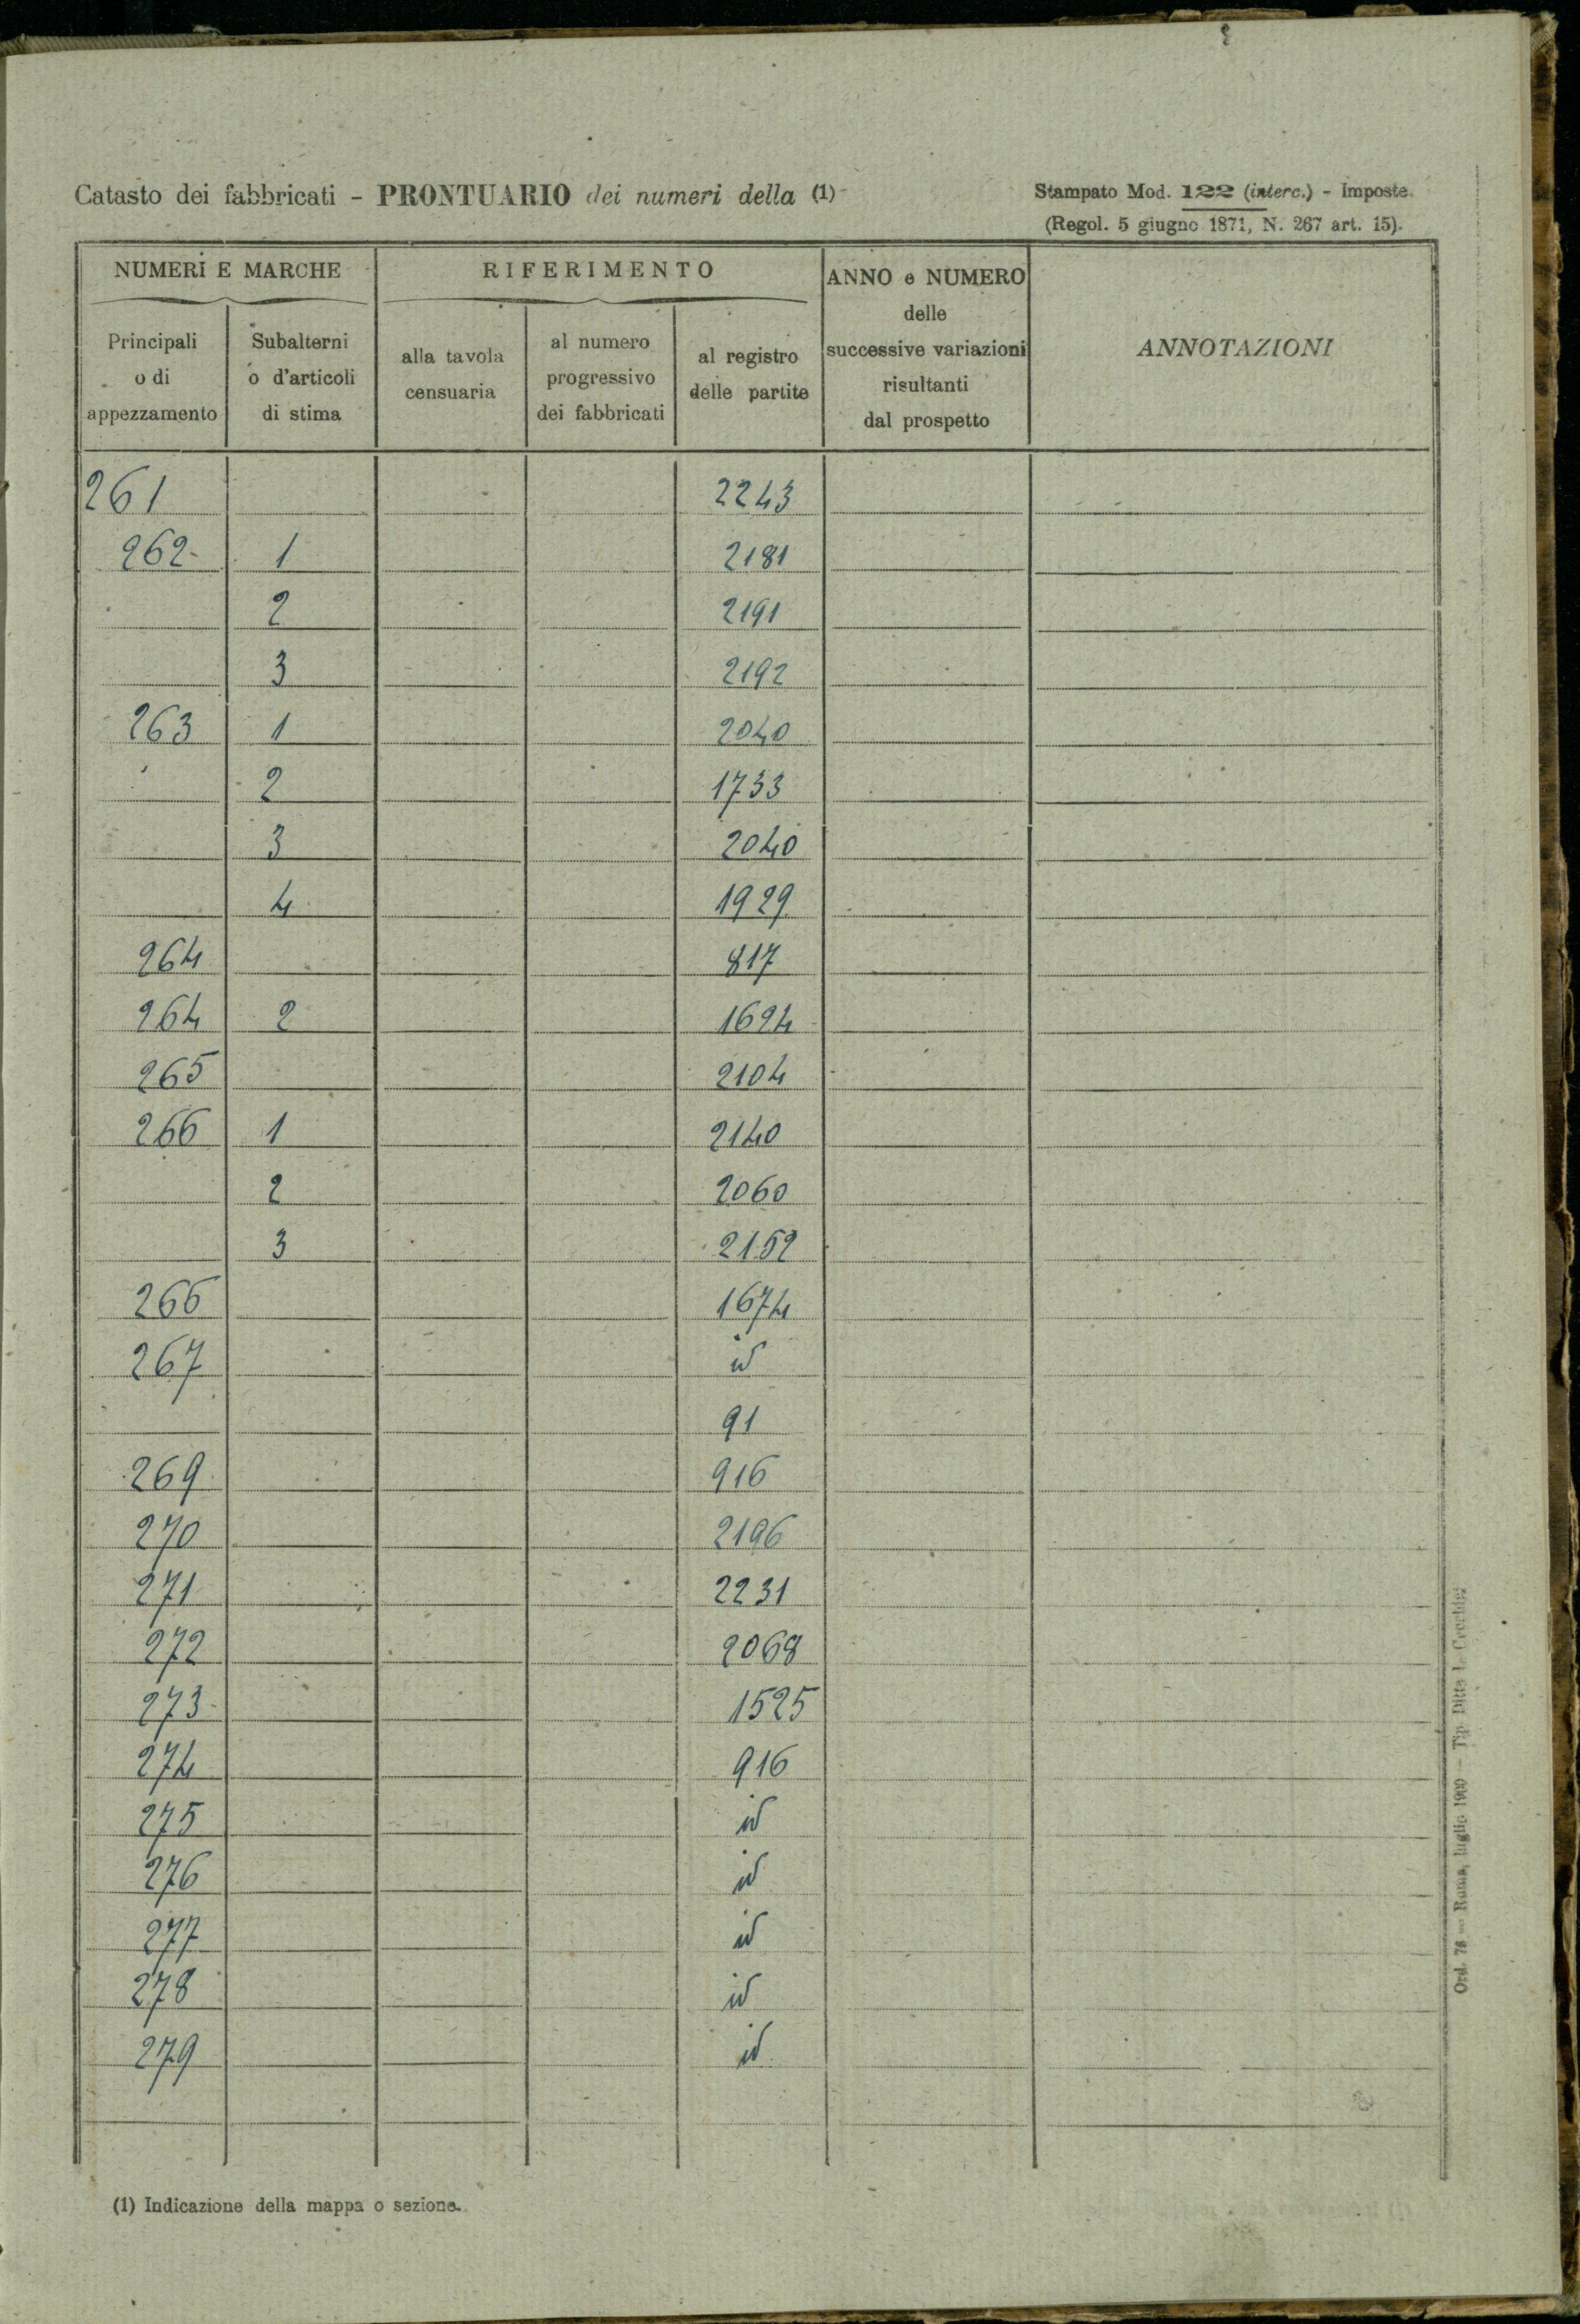 Catasto dei fabbricati - PRONTUARIO dei numeri della (1)
Stampato Mod. 122 (interc.) - Imposte.
(Regol. 5 giugno 1871, N. 267 art. 15).
NUMERI E MARCHE
RIFERIMENTO
ANNO e NUMERO
delle
successive variazioni
risultanti
dal prospetto
ANNOTAZIONI
Principali
o di
appezzamento
Subalterni
o d'articoli
di stima
alla tavola
censuaria
al numero
progressivo
dei fabbricati
al registro
delle partite
261 2243
262 1 2181
2 2191
3 2192
263 1 2040
2 1733
3 2040
4 1929
264 817
264 2 1624
265 2104
266 1 2140
2 2060
3 2152
266 1674
267 id
91
269 916
270 2196
271 2231
272 2068
273 1525
274 916
275 id
276 id
277 id
278 id
279 id
(1) Indicazione della mappa o sezione.
Ord. 76 — Roma, luglio 1900 — Tip. Ditta L. Cecchini